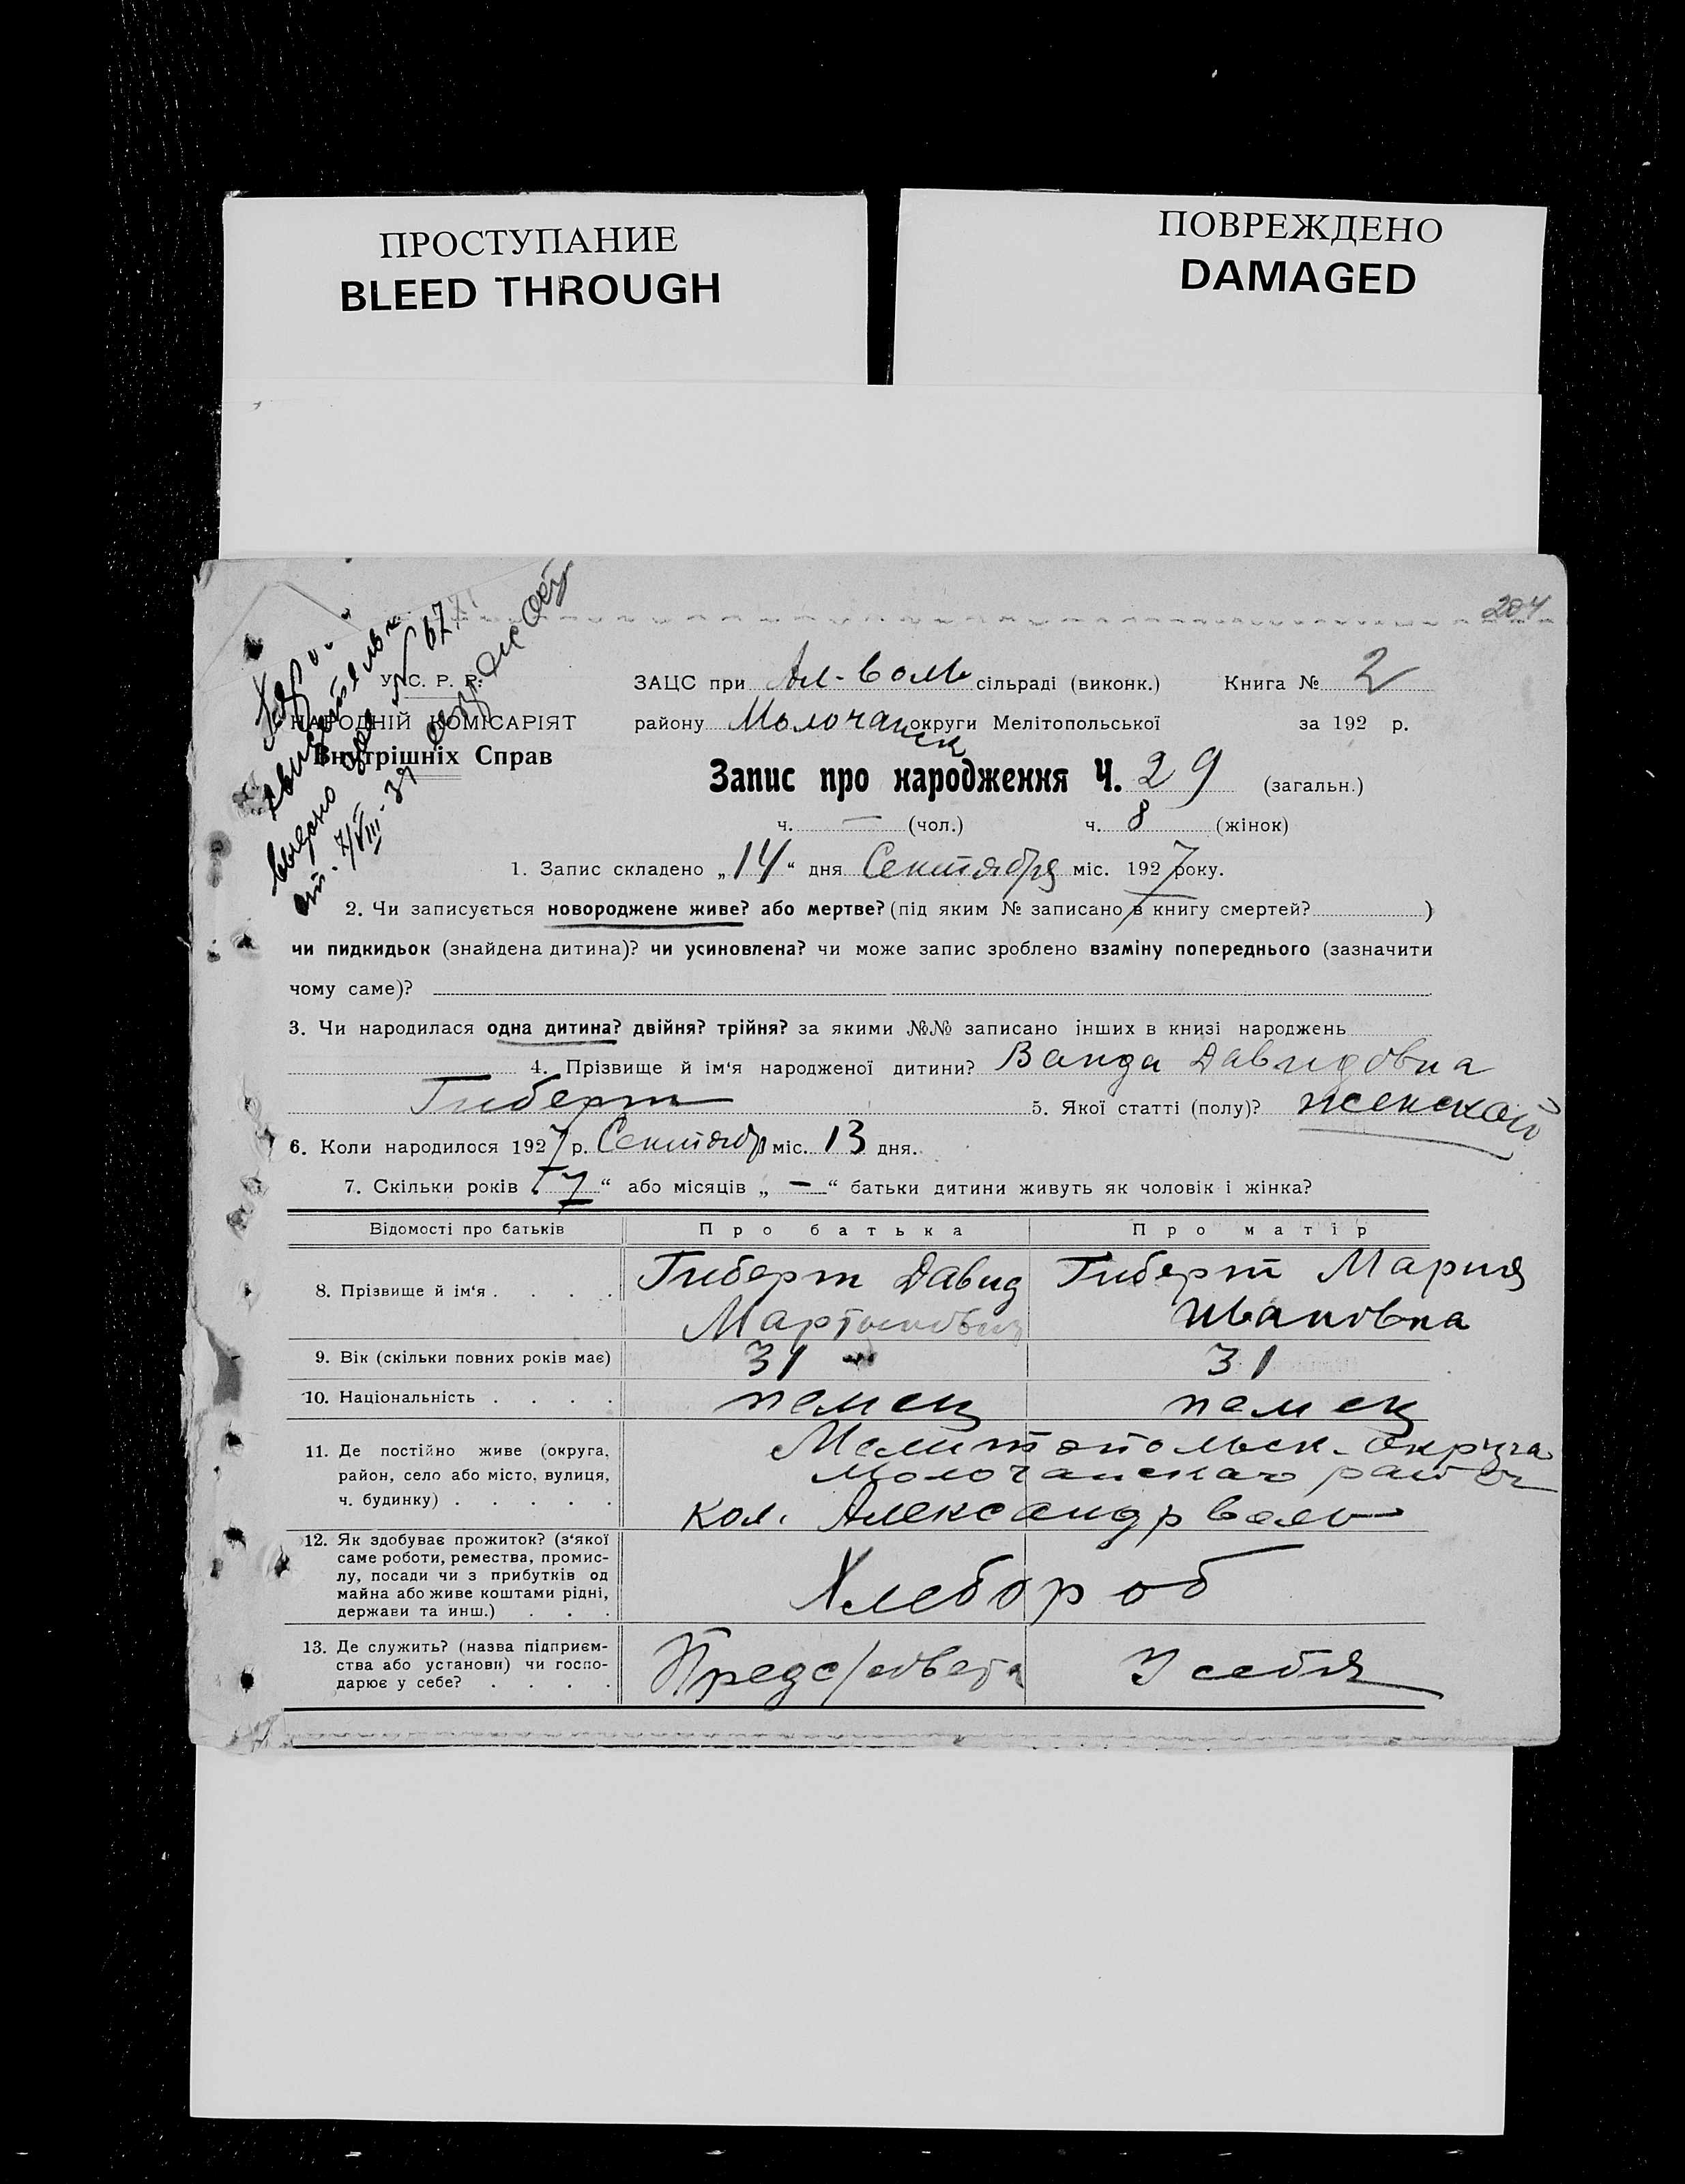 ПРОСТУПАНИЕ
BLEED THROUGH
ПОВРЕЖДЕНО
DAMAGED
204
свидетельк
выдано N 67
от. 7/VIII-39
У. С. Р. Р.
НАРОДНІЙ КОМІСАРІЯТ
Внутрішніх Справ
ЗАЦС при Ал-Воль сільраді (виконк.) Книга № 2
району Молочанск округи Мелітопольської за 192 р.
Запис про народження Ч. 29 (загальн.)
ч. — (чол.) ч. 8 (жінок)
1. Запис складено „14“ дня Сентября міс. 1927 року.
2. Чи записується новороджене живе? або мертве? (під яким № записано в книгу смертей? )
чи пидкидьок (знайдена дитина)? чи усиновлена? чи може запис зроблено взаміну попереднього (зазначити
чому саме)?
3. Чи народилася одна дитина? двійня? трійня? за якими №№ записано інших в книзі народжень
4. Прізвище й ім'я народженої дитини? Ванда Давидовна
Гиберт 5. Якої статті (полу)? женской
6. Коли народилося 1927 р. Сентябр міс. 13 дня.
7. Скільки років „7“ або місяців „—“ батьки дитини живуть як чоловік і жінка?
Відомості про батьків Про батька Про матір
8. Прізвище й ім'я . . . . Гиберт Давид Гиберт Мария
Мартынович Ивановна
9. Вік (скільки повних років має) 31 31
10. Національність . . . . немец немец
11. Де постійно живе (округа, район, село або місто, вулиця, ч. будинку) . . . . . Мелитопольск. округа
Молочанскаго район
кол. Александрволь
12. Як здобуває прожиток? (з'якої саме роботи, ремества, промислу, посади чи з прибутків од майна або живе коштами рідні, держави та инш.) . . . Хлебороб
13. Де служить? (назва підприємства або установи) чи господарює у себе? . . . . Предс/совета У себя